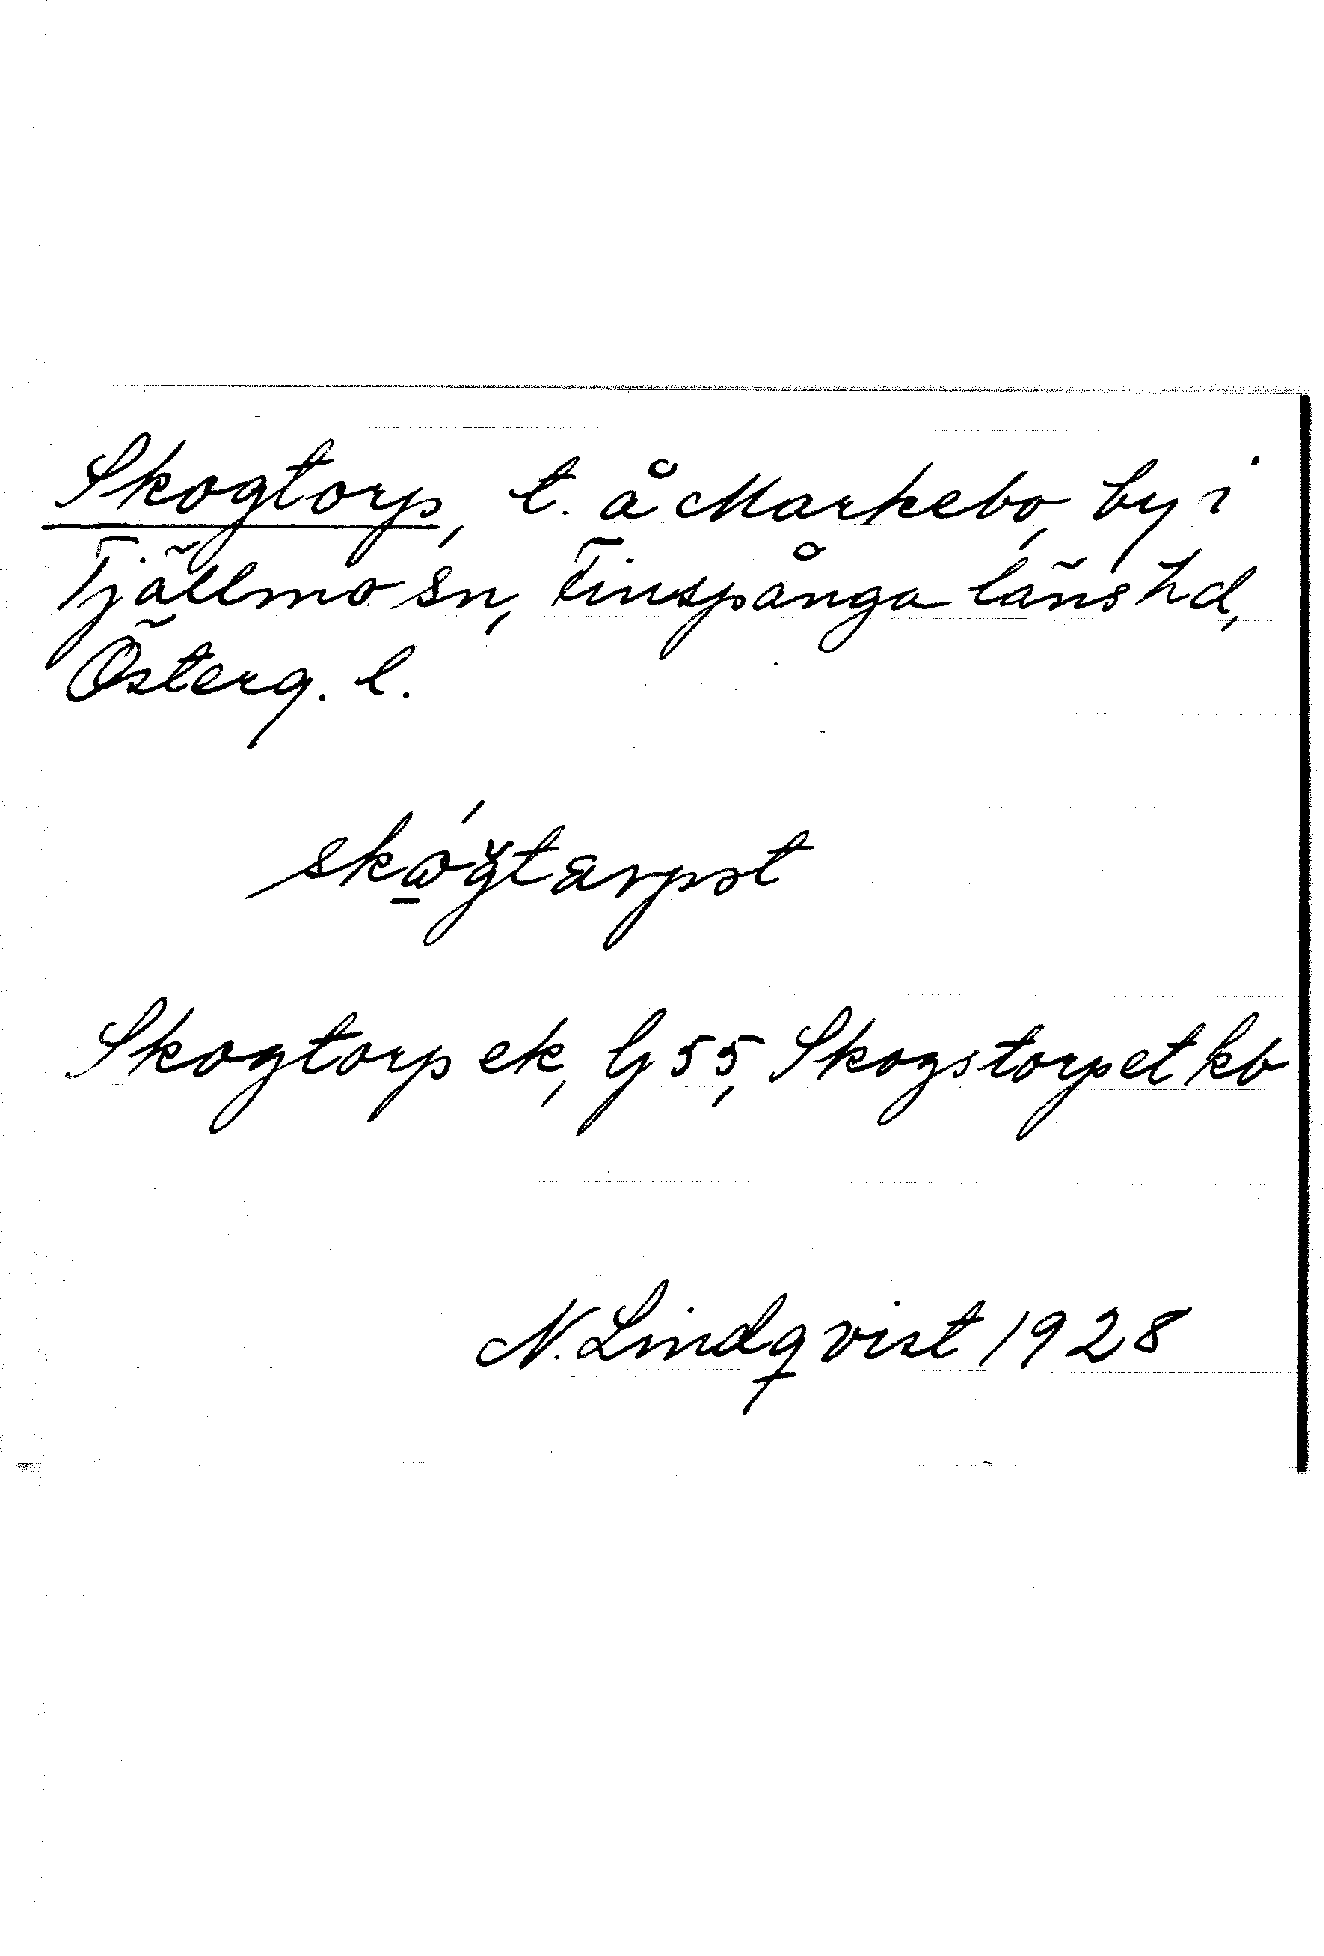 Skogtorp, t. å Markebo, by i
Tjällmo sn, Finspånga läns hd,
Österg. l.
skógtarpət
Skogtorp ek, Gj 55, Skogstorpet kb
N. Lindqvist 1928